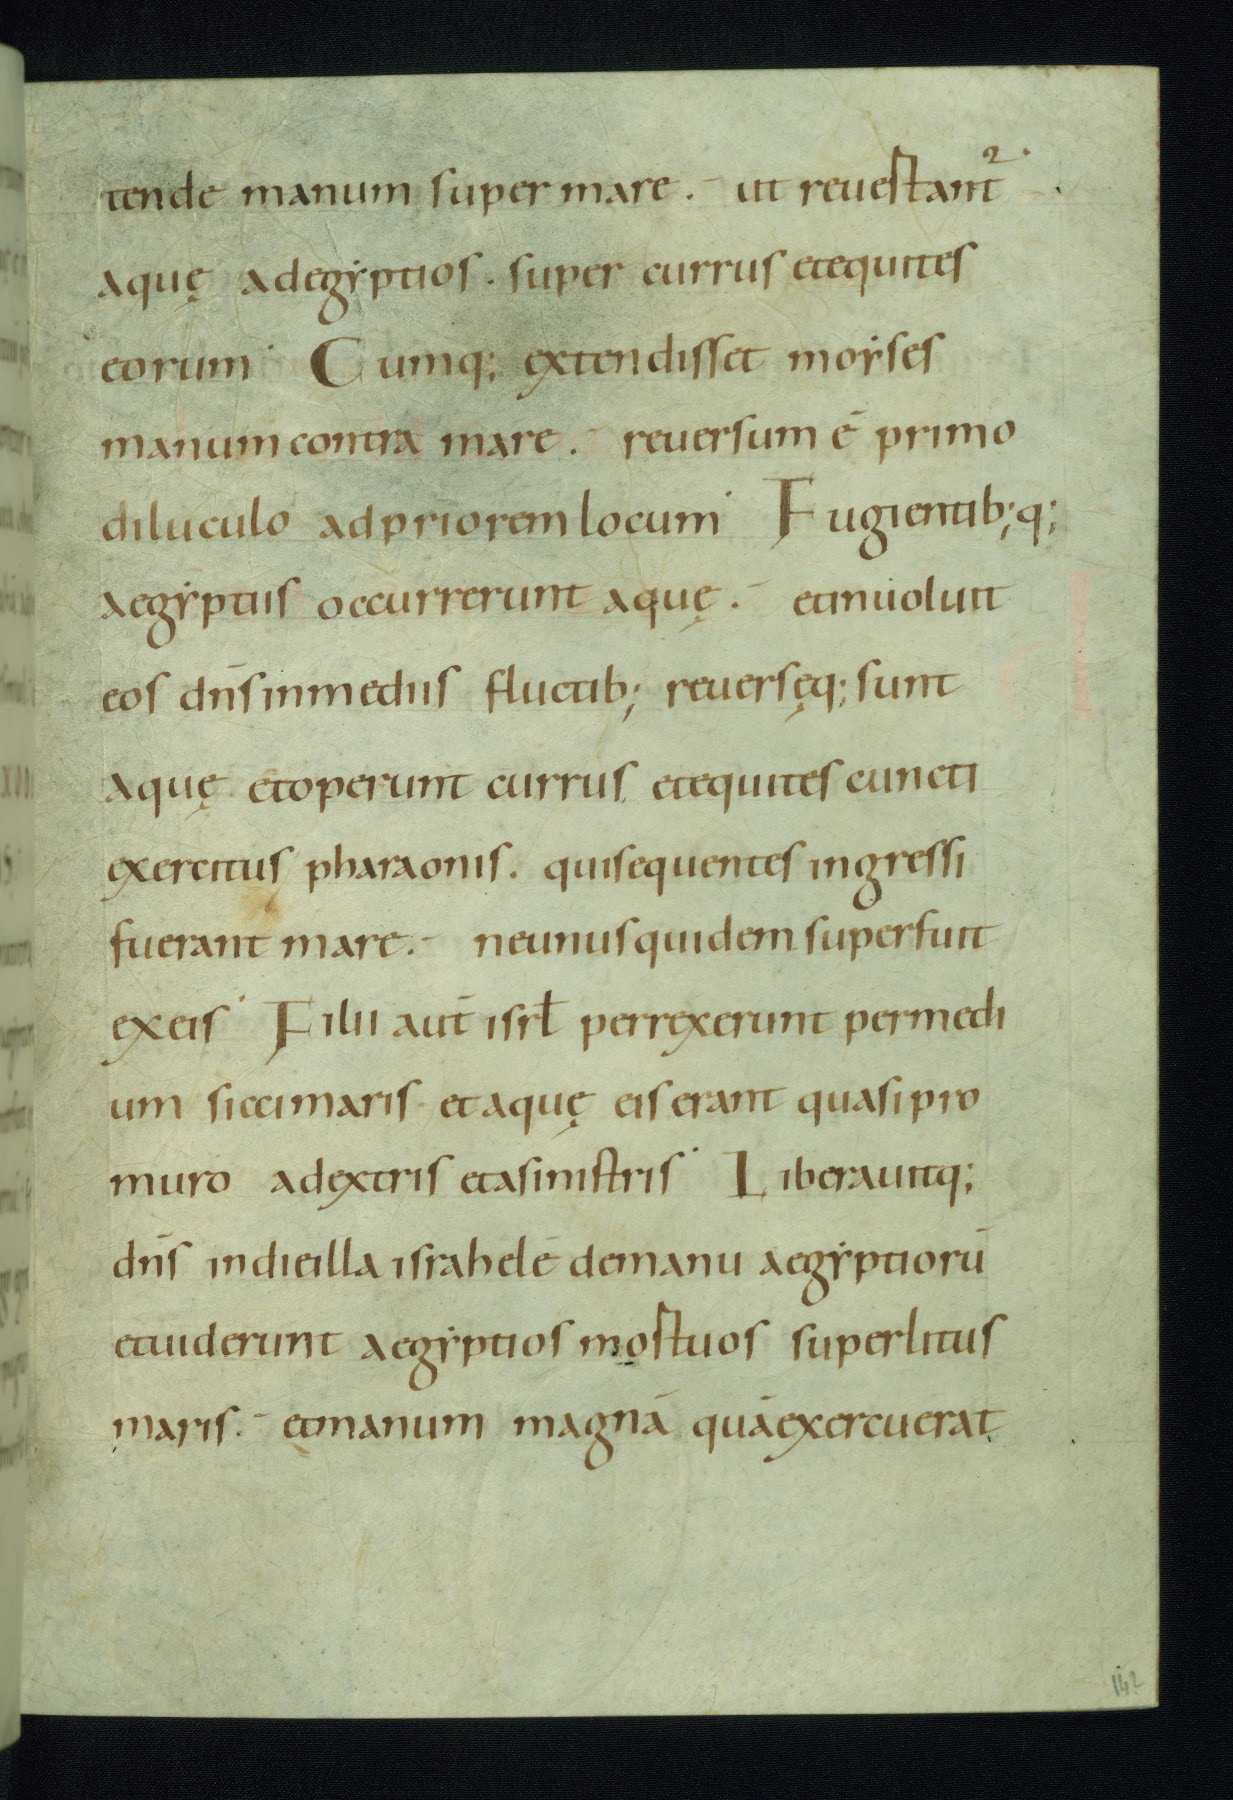 tende manum super mare. ut reuertant᷑
aquę ad egẏptios. super currus et equites
eorum Cumq; extendisset moẏses
manum contra mare. reuersum ē primo
diluculo ad priorem locum Fugientib;q;
aegẏptiis occurrerunt aquę. et inuoluit
eos dn̄s in mediis fluctib; reuersęq; sunt
aquę et operunt currus et equites cuncti
exercitus pharaonis. qui sequentes ingressi
fuerant mare. ne unus quidem superfuit
ex eis Filii aut̄ isrl̄ perrexerunt per medi
um sicci maris et aquę eis erant quasi pro
muro a dextris et a sinistris Liberauitq;
dn̄s in die illa israhelē de manu aegẏptiorū
et uiderunt aegẏptios mortuos super litus
maris. et manum magnā quā exercuerat
142